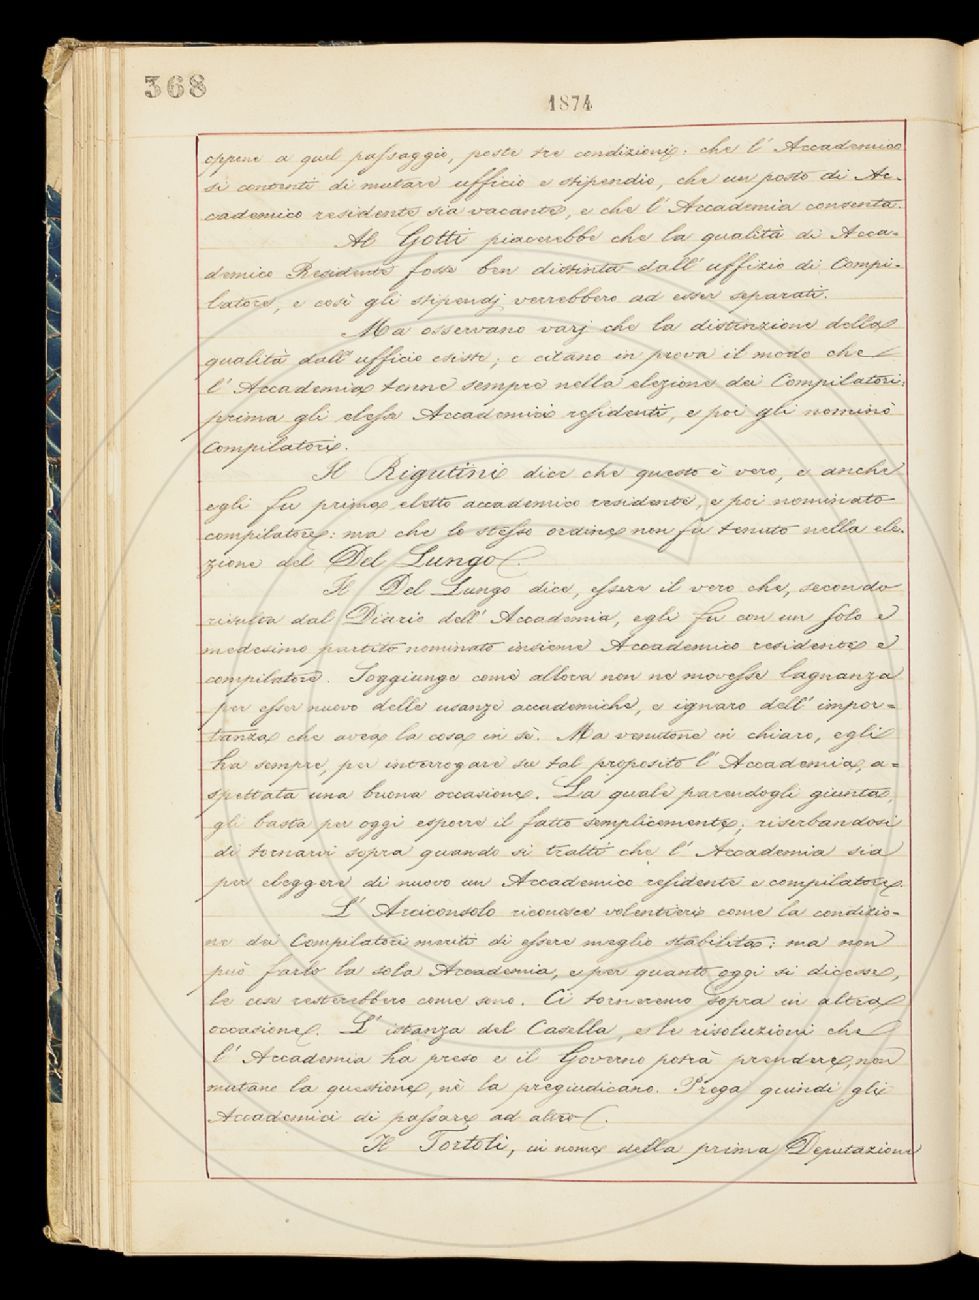 368
1874
oppone a quel passaggio, poste tre condizioni: che l'Accademico
si contenti di mutare ufficio e stipendio, che un posto di Ac-
cademico residente sia vacante, e che l'Accademia consenta.
Al Gotti piacerebbe che la qualità di Acca-
demico Residente fosse ben distinta dall'uffizio di Compi-
latore, e così gli stipendj verrebbero ad esser separati.
Ma osservano varj che la distinzione della
qualità dall'ufficio esiste; e citano in prova il modo che
l'Accademia tenne sempre nella elezione dei Compilatori:
prima gli elesse Accademici residenti, e poi gli nominò
Compilatori.
Il Rigutini dice che questo è vero, e anche
egli fu prima eletto accademico residente, e poi nominato
compilatore: ma che lo stesso ordine non fu tenuto nella ele-
zione del Del Lungo.
Il Del Lungo dice, essere il vero che, secondo
risulta dal Diario dell'Accademia, egli fu con un solo e
medesimo partito nominato insieme Accademico residente e
compilatore. Soggiunge come allora non ne movesse lagnanza
per esser nuovo delle usanze accademiche, e ignaro dell'impor-
tanza che avea la cosa in sè. Ma venutone in chiaro, egli
ha sempre, per interrogare su tal proposito l'Accademia, a-
spettata una buona occasione. La quale parendogli giunta,
gli basta per oggi esporre il fatto semplicemente; riserbandosi
di tornarvi sopra quando si tratti che l'Accademia sia
per eleggere di nuovo un Accademico residente e compilatore.
L'Arciconsolo riconosce volentieri come la condizio-
ne dei Compilatori meriti di essere meglio stabilita: ma non
può farlo la sola Accademia, e per quanto oggi si dicesse,
le cose resterebbero come sono. Ci torneremo sopra in altra
occasione. L'istanza del Casella, e le risoluzioni che
l'Accademia ha preso e il Governo potrà prendere, non
mutano la questione, nè la pregiudicano. Prega quindi gli
Accademici di passare ad altro.
Il Tortoli, in nome della prima Deputazione